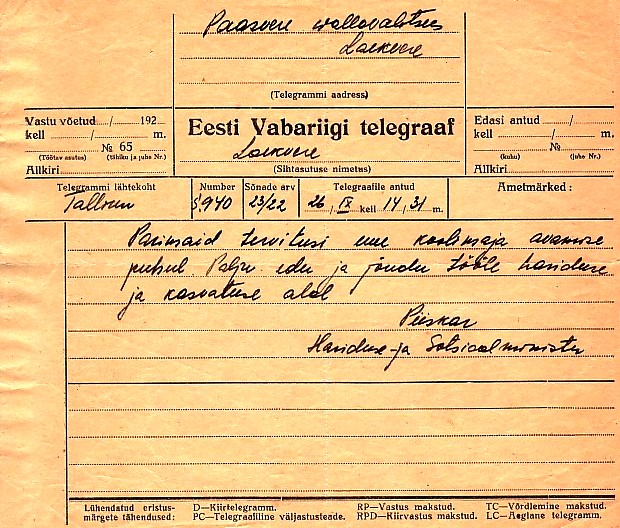 Paasvere vallavalitsus
Laekvere
(Telegrammi aadress)
Vastu võetud / 192
kell / m.
№ 65
(Töötav asutus) (tähiku ja juhe Nr.)
Allkiri
Eesti Vabariigi telegraaf
Laekvere
(Sihtasutuse nimetus)
Edasi antud /
kell / m.
№
(kuhu) (juhe Nr.)
Allkiri
Telegrammi lähtekoht
Tallinn
Number
940
Sõnade arv
23/22
Telegraafile antud
26 / IX kell 14, 31 m.
Ametmärked:
Parimaid tervitusi uue koolimaja avamise
puhul Palju edu ja jõudu tööle hariduse
ja kasvatuse alal
Piiskar
Hariduse-ja Sotsiaalminister
Lühendatud eristus-
märgete tähendused:
D—Kiirtelegramm.
PC—Telegraafiline väljastusteade.
RP—Vastus makstud.
RPD—Kiirvastus makstud.
TC—Võrdlemine makstud.
LC—Aeglane telegramm.